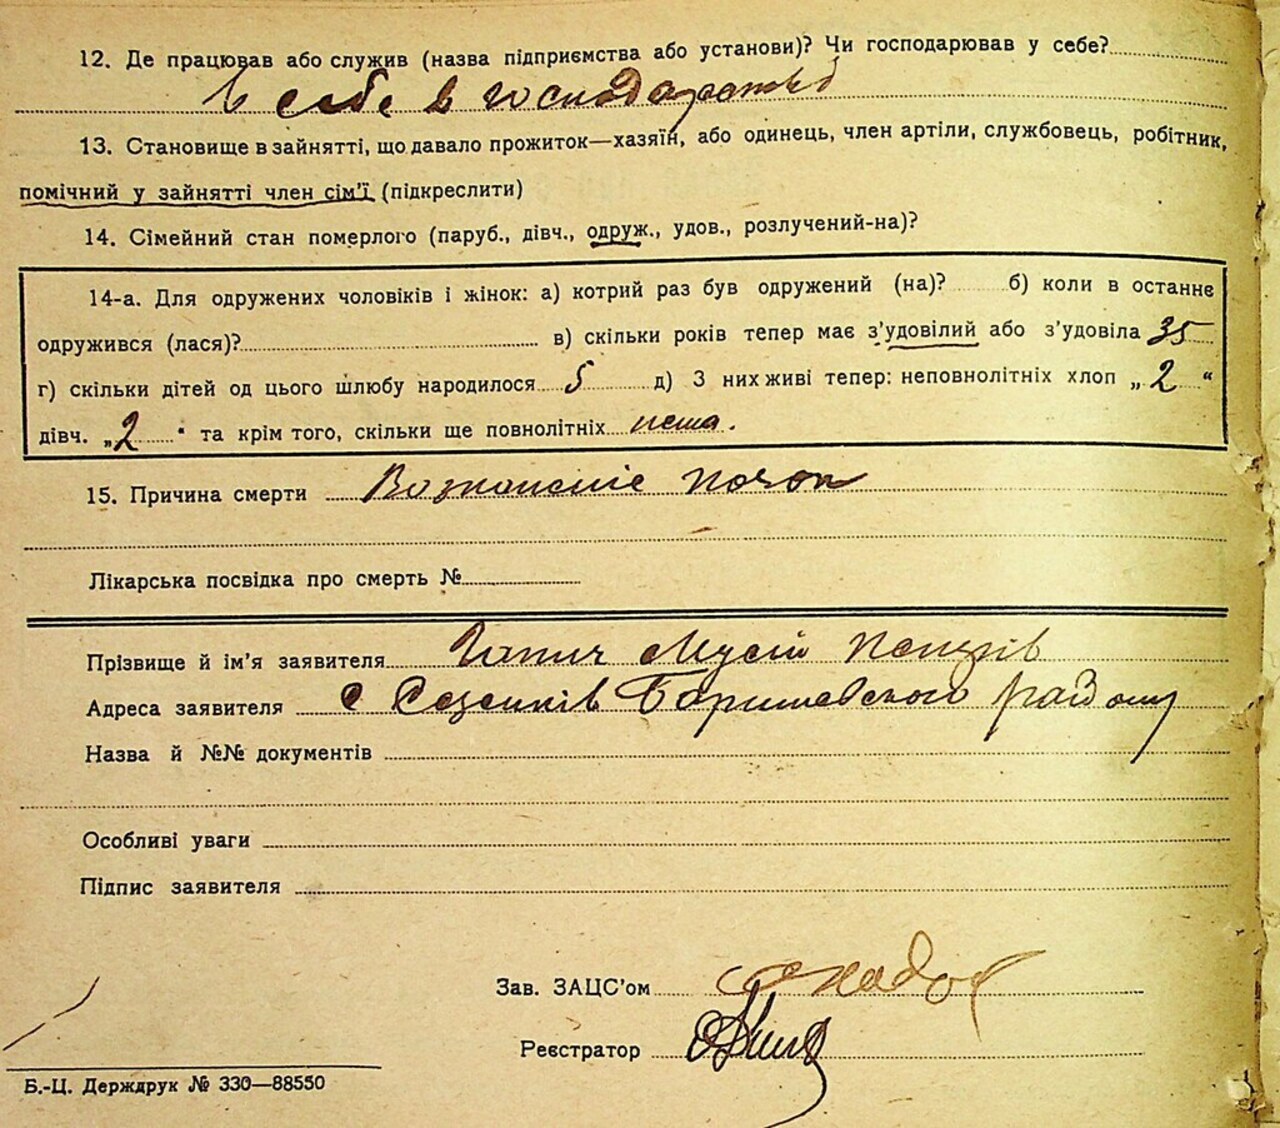 12. Де працював або служив (назва підприємства або установи)? Чи господарював у себе?
в себе в господарстві
13. Становище в зайнятті, що давало прожиток—хазяїн, або одинець, член артілі, службовець, робітник,
помічний у зайнятті член сім'ї (підкреслити)
14. Сімейний стан померлого (паруб., дівч., одруж., удов., розлучений-на)?
14-а. Для одружених чоловіків і жінок: а) котрий раз був одружений (на)? б) коли в останнє
одружився (лася)? в) скільки років тепер має з'удовілий або з'удовіла 35
г) скільки дітей од цього шлюбу народилося 5 д) З них живі тепер: неповнолітніх хлоп „2“
дівч. „2“ та крім того, скільки ще повнолітніх нема.
15. Причина смерти
Лікарська посвідка про смерть №
Прізвище й ім'я заявителя Мусій
Адреса заявителя с Баришевського району
Назва й №№ документів
Особливі уваги
Підпис заявителя
Зав. ЗАЦС'ом
Реєстратор
Б.-Ц. Держдрук № 330—88550